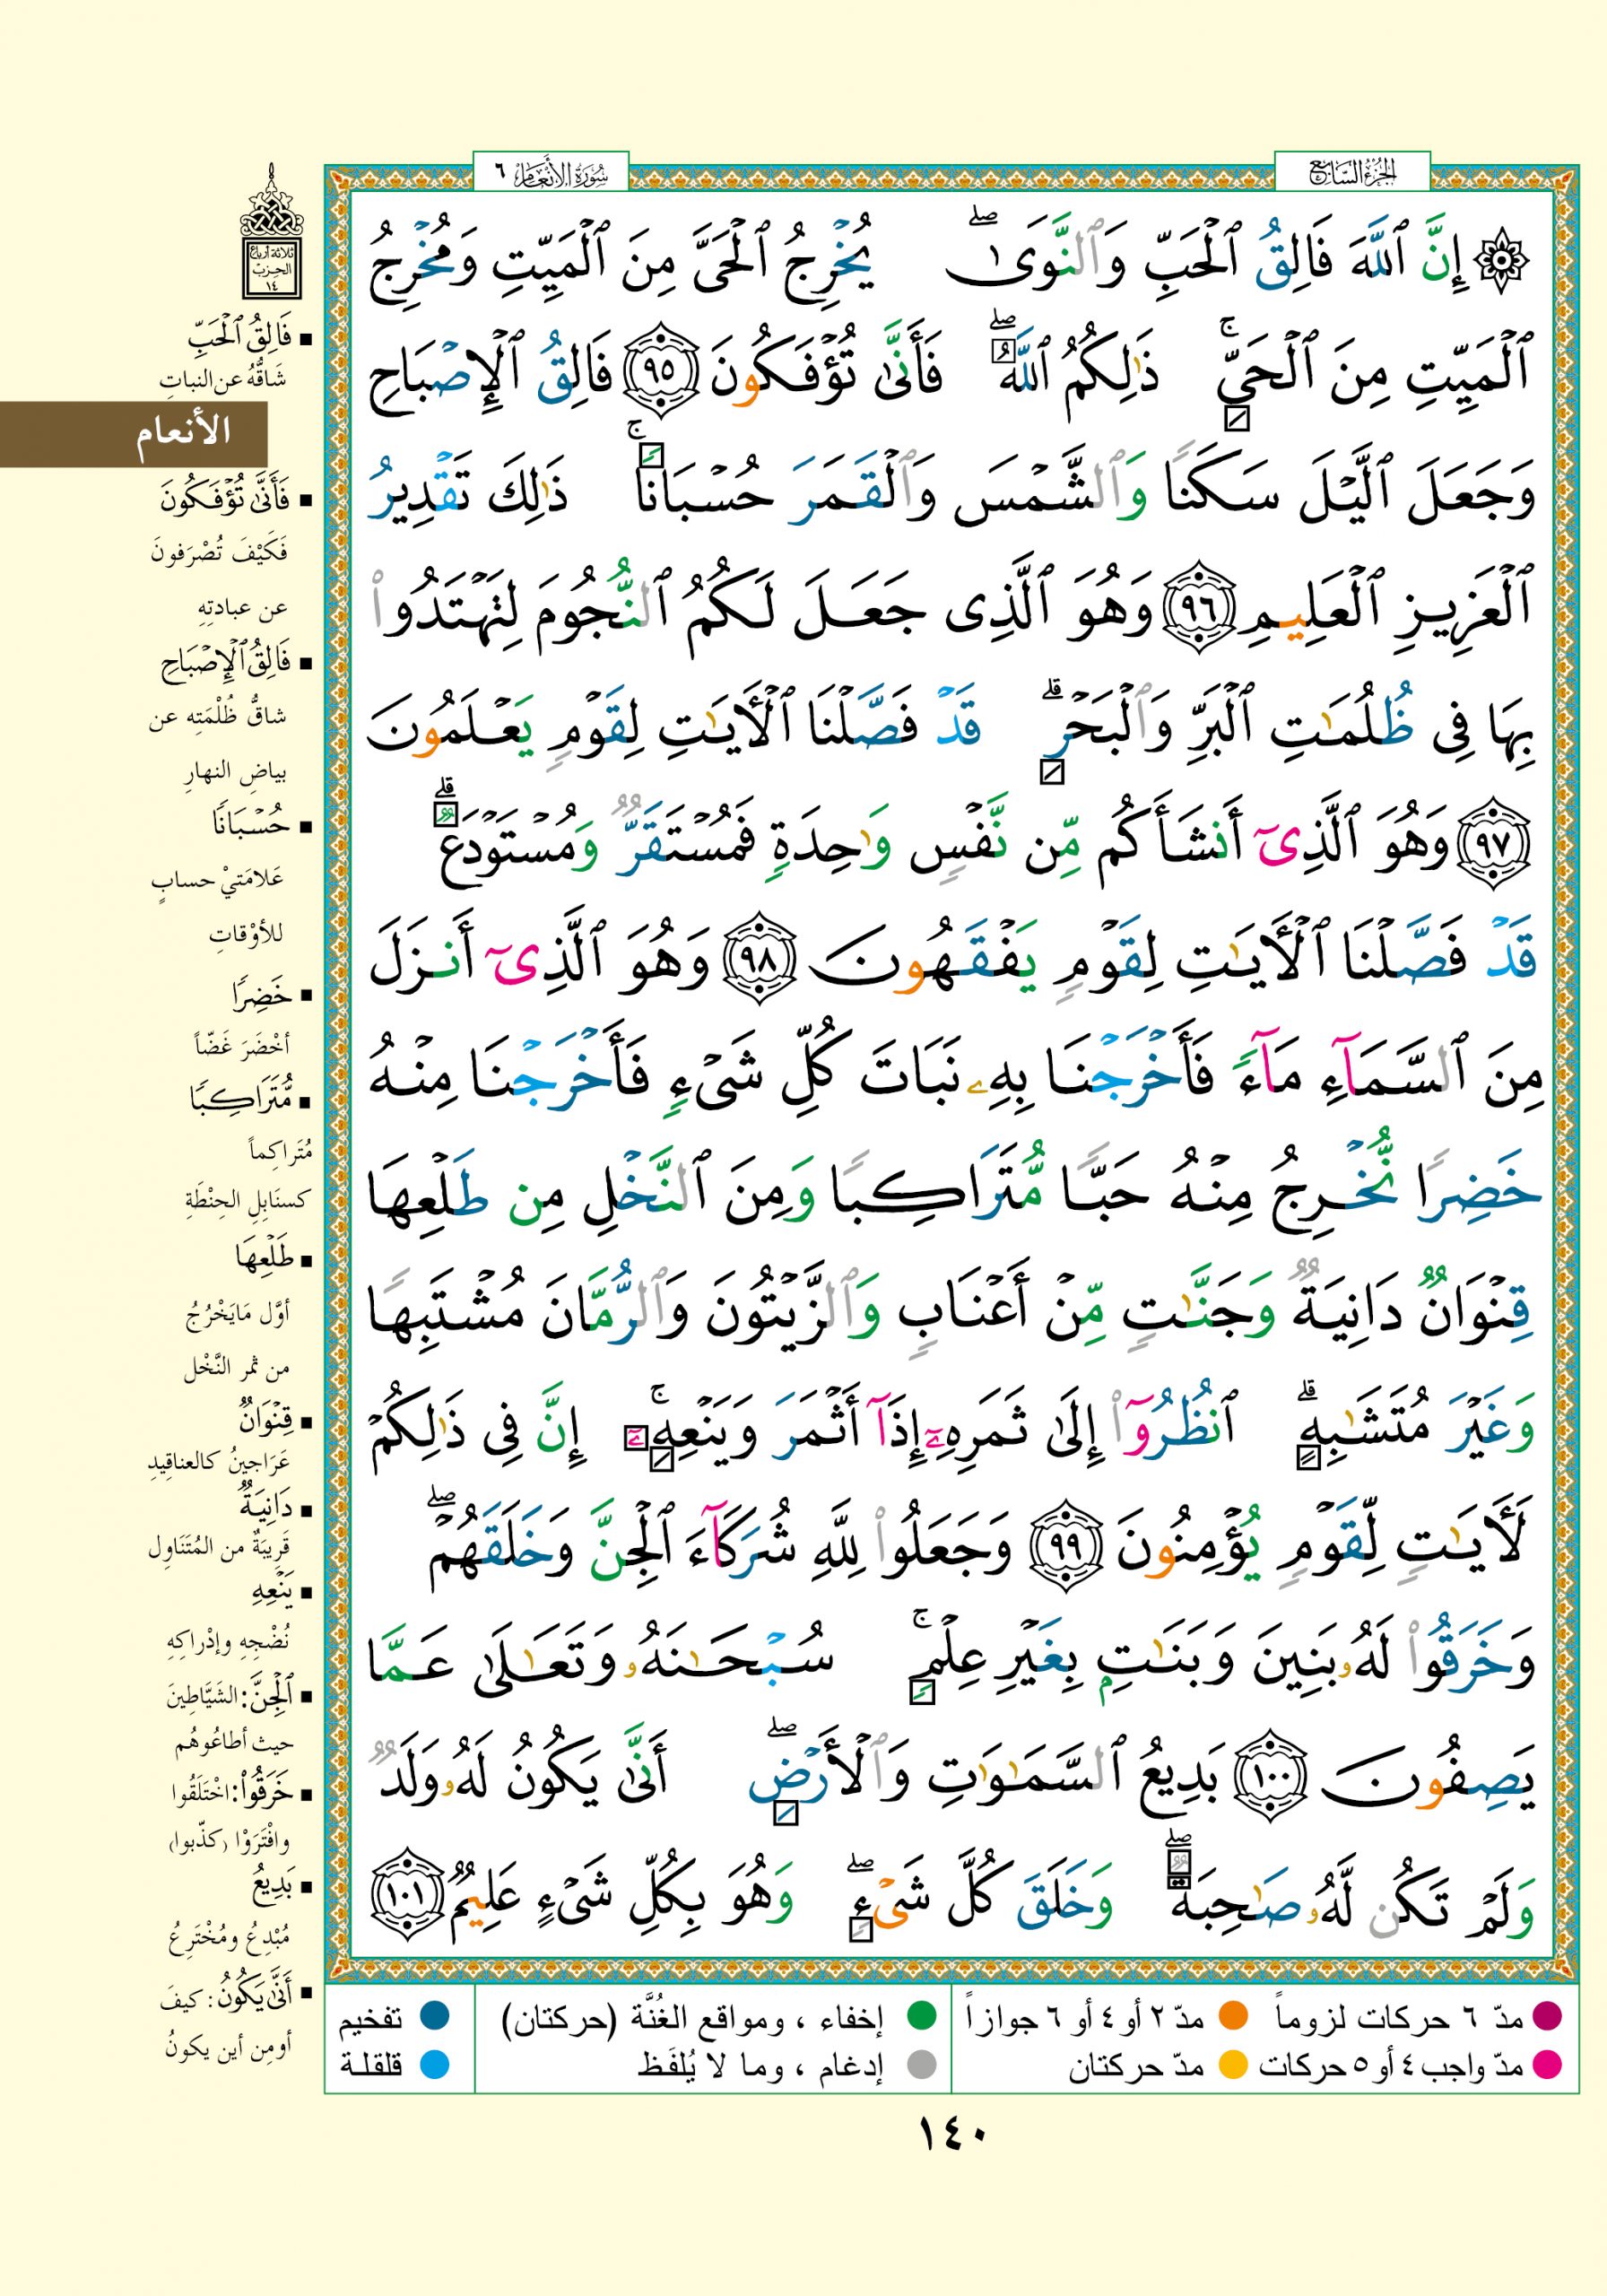 الجزء السابع
سورة الأنعام ٦
۞ إِنَّ ٱللَّهَ فَالِقُ ٱلْحَبِّ وَٱلنَّوَىٰ ۖ يُخْرِجُ ٱلْحَىَّ مِنَ ٱلْمَيِّتِ وَمُخْرِجُ
ٱلْمَيِّتِ مِنَ ٱلْحَىِّ ۚ ذَٰلِكُمُ ٱللَّهُ ۖ فَأَنَّىٰ تُؤْفَكُونَ ٩٥ فَالِقُ ٱلْإِصْبَاحِ
وَجَعَلَ ٱلَّيْلَ سَكَنًا وَٱلشَّمْسَ وَٱلْقَمَرَ حُسْبَانًا ۚ ذَٰلِكَ تَقْدِيرُ
ٱلْعَزِيزِ ٱلْعَلِيمِ ٩٦ وَهُوَ ٱلَّذِى جَعَلَ لَكُمُ ٱلنُّجُومَ لِتَهْتَدُوا۟
بِهَا فِى ظُلُمَٰتِ ٱلْبَرِّ وَٱلْبَحْرِ ۗ قَدْ فَصَّلْنَا ٱلْءَايَٰتِ لِقَوْمٍ يَعْلَمُونَ
٩٧ وَهُوَ ٱلَّذِىٓ أَنشَأَكُم مِّن نَّفْسٍ وَٰحِدَةٍ فَمُسْتَقَرٌّ وَمُسْتَوْدَعٌ ۗ
قَدْ فَصَّلْنَا ٱلْءَايَٰتِ لِقَوْمٍ يَفْقَهُونَ ٩٨ وَهُوَ ٱلَّذِىٓ أَنزَلَ
مِنَ ٱلسَّمَآءِ مَآءً فَأَخْرَجْنَا بِهِۦ نَبَاتَ كُلِّ شَىْءٍ فَأَخْرَجْنَا مِنْهُ
خَضِرًا نُّخْرِجُ مِنْهُ حَبًّا مُّتَرَاكِبًا وَمِنَ ٱلنَّخْلِ مِن طَلْعِهَا
قِنْوَانٌ دَانِيَةٌ وَجَنَّٰتٍ مِّنْ أَعْنَابٍ وَٱلزَّيْتُونَ وَٱلرُّمَّانَ مُشْتَبِهًا
وَغَيْرَ مُتَشَٰبِهٍ ۗ ٱنظُرُوٓا۟ إِلَىٰ ثَمَرِهِۦٓ إِذَآ أَثْمَرَ وَيَنْعِهِۦٓ ۚ إِنَّ فِى ذَٰلِكُمْ
لَءَايَٰتٍ لِّقَوْمٍ يُؤْمِنُونَ ٩٩ وَجَعَلُوا۟ لِلَّهِ شُرَكَآءَ ٱلْجِنَّ وَخَلَقَهُمْ ۖ
وَخَرَقُوا۟ لَهُۥ بَنِينَ وَبَنَٰتٍۭ بِغَيْرِ عِلْمٍ ۚ سُبْحَٰنَهُۥ وَتَعَٰلَىٰ عَمَّا
يَصِفُونَ ١٠٠ بَدِيعُ ٱلسَّمَٰوَٰتِ وَٱلْأَرْضِ ۖ أَنَّىٰ يَكُونُ لَهُۥ وَلَدٌ
وَلَمْ تَكُن لَّهُۥ صَٰحِبَةٌ ۖ وَخَلَقَ كُلَّ شَىْءٍ ۖ وَهُوَ بِكُلِّ شَىْءٍ عَلِيمٌ ١٠١
ثلاثة أرباع
الحزب
١٤
▪ فَالِقُ ٱلْحَبِّ
شَاقُّهُ عن النباتِ
الأنعام
▪ فَأَنَّىٰ تُؤْفَكُونَ
فَكَيْفَ تُصْرَفونَ
عن عبادتِهِ
▪ فَالِقُ ٱلْإِصْبَاحِ
شاقُّ ظُلْمَتِه عن
بياضِ النهارِ
▪ حُسْبَانًا
عَلامَتيْ حسابٍ
للأوْقاتِ
▪ خَضِرًا
أخْضَرَ غَضّاً
▪ مُّتَرَاكِبًا
مُتَراكِماً
كسنَابِلِ الحِنْطَةِ
▪ طَلْعِهَا
أوَّل مَايَخْرُجُ
من ثمر النَّخْل
▪ قِنْوَانٌ
عَرَاجينُ كالعناقِيدِ
▪ دَانِيَةٌ
قَريبَةٌ من المُتَنَاوِل
▪ يَنْعِهِ
نُضْجِهِ وإدْراكِهِ
▪ ٱلْجِنَّ: الشَيَّاطِينَ
حيث أطاعُوهُم
▪ خَرَقُوا۟: اخْتَلَقُوا
وافْتَرَوْا (كذّبوا)
▪ بَدِيعُ
مُبْدِعُ ومُخْتَرِعُ
▪ أَنَّىٰ يَكُونُ: كيفَ
أومِن أين يكونُ
مدّ ٦ حركات لزوماً ● مدّ ٢ أو ٤ أو ٦ جوازاً ● إخفاء ، ومواقع الغُنَّة (حركتان) ● تفخيم
مدّ واجب ٤ أو ٥ حركات ● مدّ حركتان ● إدغام ، وما لا يُلفَظ ● قلقلة
١٤٠